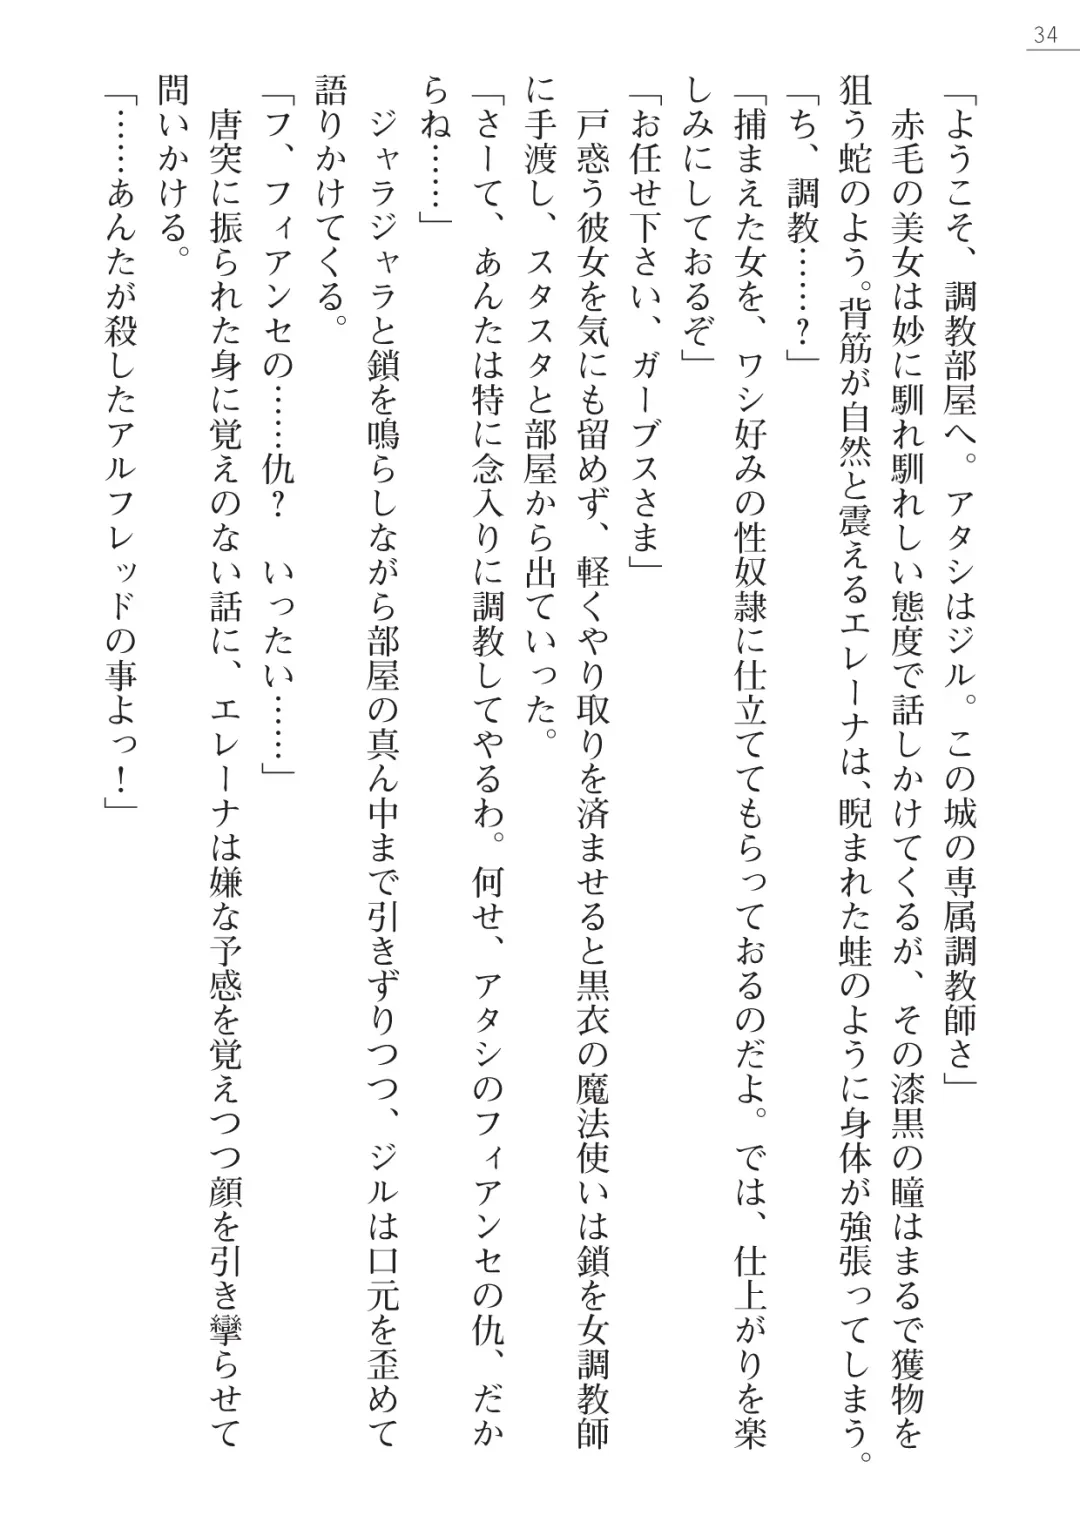 34
「ようこそ、調教部屋へ。アタシはジル。この城の専属調教師さ」
赤毛の美女は妙に馴れ馴れしい態度で話しかけてくるが、その漆黒の瞳はまるで獲物を
狙う蛇のよう。背筋が自然と震えるエレーナは、睨まれた蛙のように身体が強張ってしまう。
「ち、調教……？」
「捕まえた女を、ワシ好みの性奴隷に仕立ててもらっておるのだよ。では、仕上がりを楽
しみにしておるぞ」
「お任せ下さい、ガーブスさま」
戸惑う彼女を気にも留めず、軽くやり取りを済ませると黒衣の魔法使いは鎖を女調教師
に手渡し、スタスタと部屋から出ていった。
「さーて、あんたは特に念入りに調教してやるわ。何せ、アタシのフィアンセの仇、だか
らね……」
ジャラジャラと鎖を鳴らしながら部屋の真ん中まで引きずりつつ、ジルは口元を歪めて
語りかけてくる。
「フ、フィアンセの……仇？　いったい……」
唐突に振られた身に覚えのない話に、エレーナは嫌な予感を覚えつつ顔を引き攣らせて
問いかける。
「……あんたが殺したアルフレッドの事よっ！」